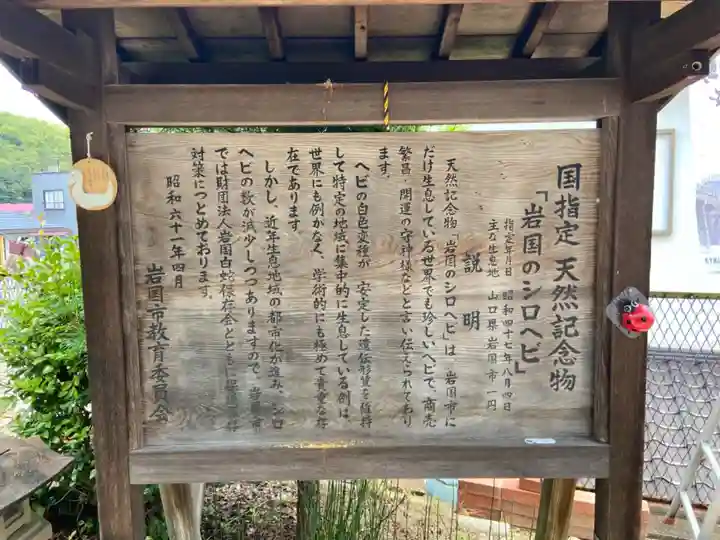 国指定 天然記念物
「岩国のシロヘビ」
指定年月日 昭和四十七年八月四日
主な生息地 山口県岩国市一円
説明
天然記念物「岩国のシロヘビ」は、岩国市に
だけ生息している世界でも珍しいヘビで、商売
繁昌、開運の守神様などと言い伝えられており
ます。
ヘビの白色変種が、安定した遺伝形質を維持
して特定の地域に集中的に生息している例は、
世界にも例がなく、学術的にも極めて貴重な存
在であります。
しかし、近年生息地域の都市化が進み、シロ
ヘビの数が減少しつつありますので、岩国市
では財団法人岩国白蛇保存会とともに
対策につとめております。
昭和六十一年四月
岩国市教育委員会